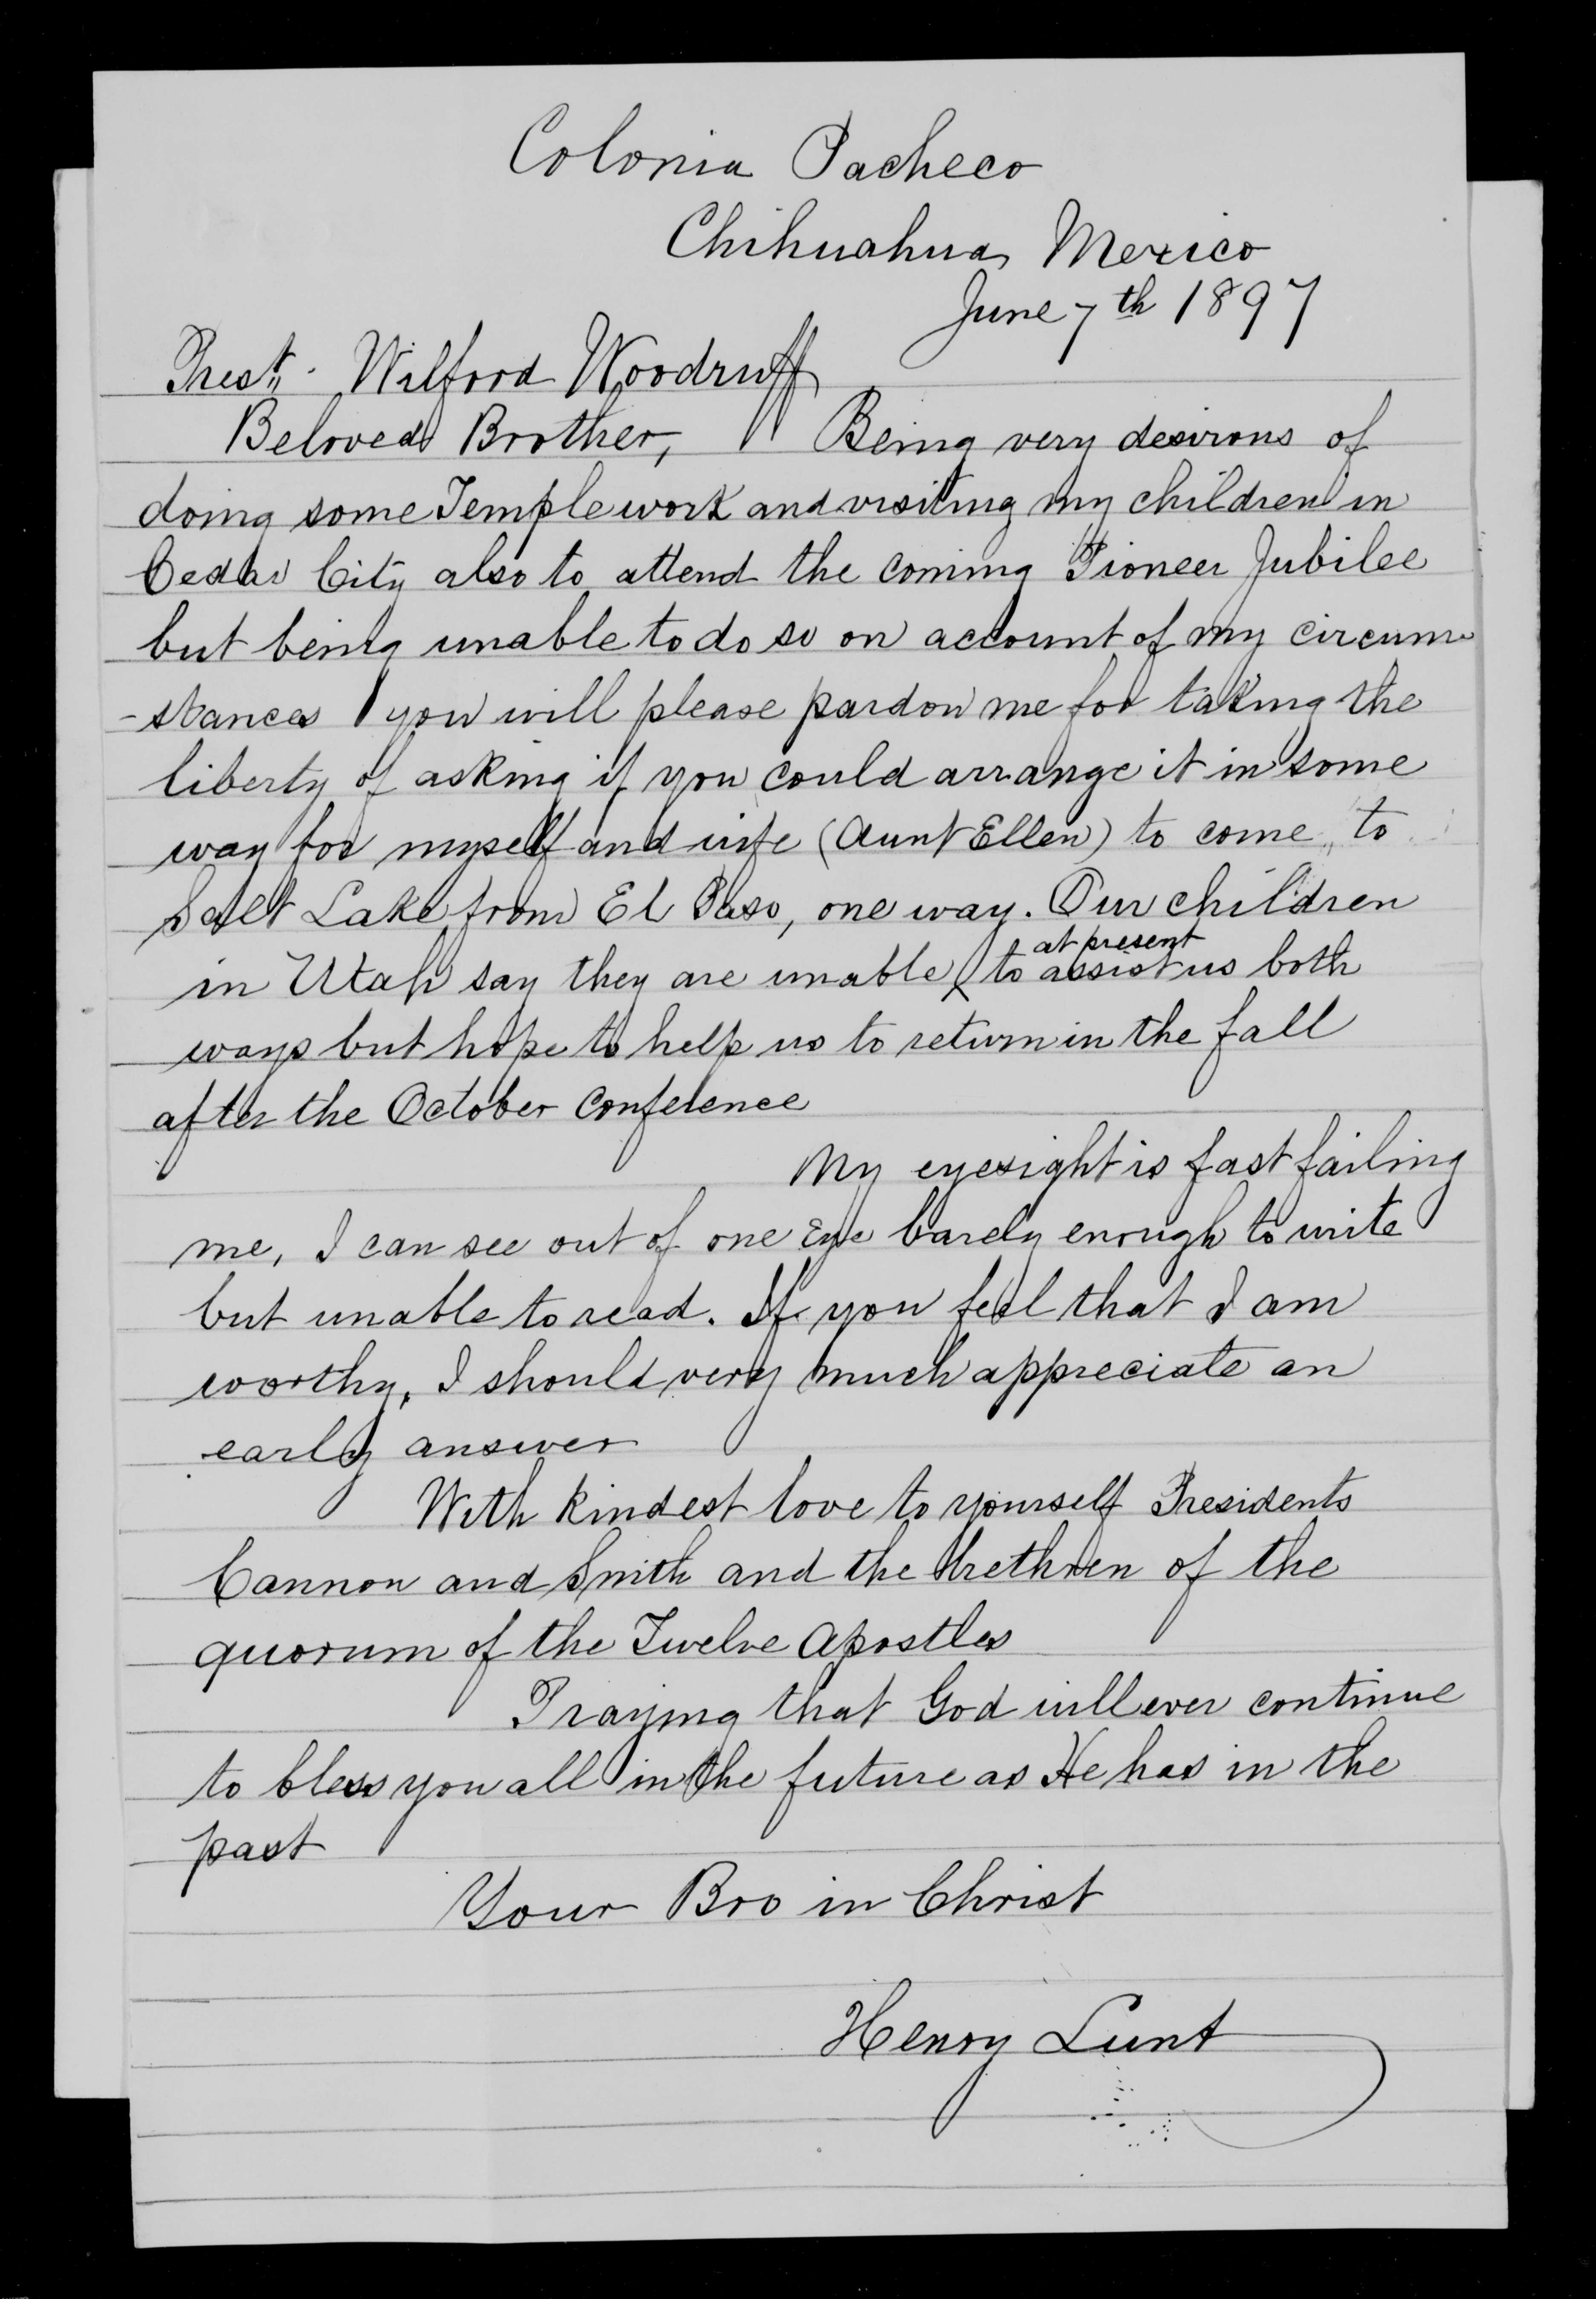 Colonia Pacheco
Chihuahua, Mexico
June 7th 1897
Prest. Wilford Woodruff
Beloved Brother, Being very desirous of
doing some Temple work and visiting my children in
Cedar City also to attend the coming Pioneer Jubilee
but being unable to do so on account of my circum-
-stances you will please pardon me for taking the
liberty of asking if you could arrange it in some
way for myself and wife (Aunt Ellen) to come, to
Salt Lake from El Paso, one way. Our children
in Utah say they are unable at present to assist us both
ways but hope to help us to return in the fall
after the October conference
My eyesight is fast failing
me, I can see out of one eye barely enough to write
but unable to read. If you feel that I am
worthy, I should very much appreciate an
early answer
With kindest love to yourself Presidents
Cannon and Smith and the brethren of the
quorum of the Twelve Apostles
Praying that God will ever continue
to bless you all in the future as He has in the
past
Your Bro in Christ
Henry Lunt